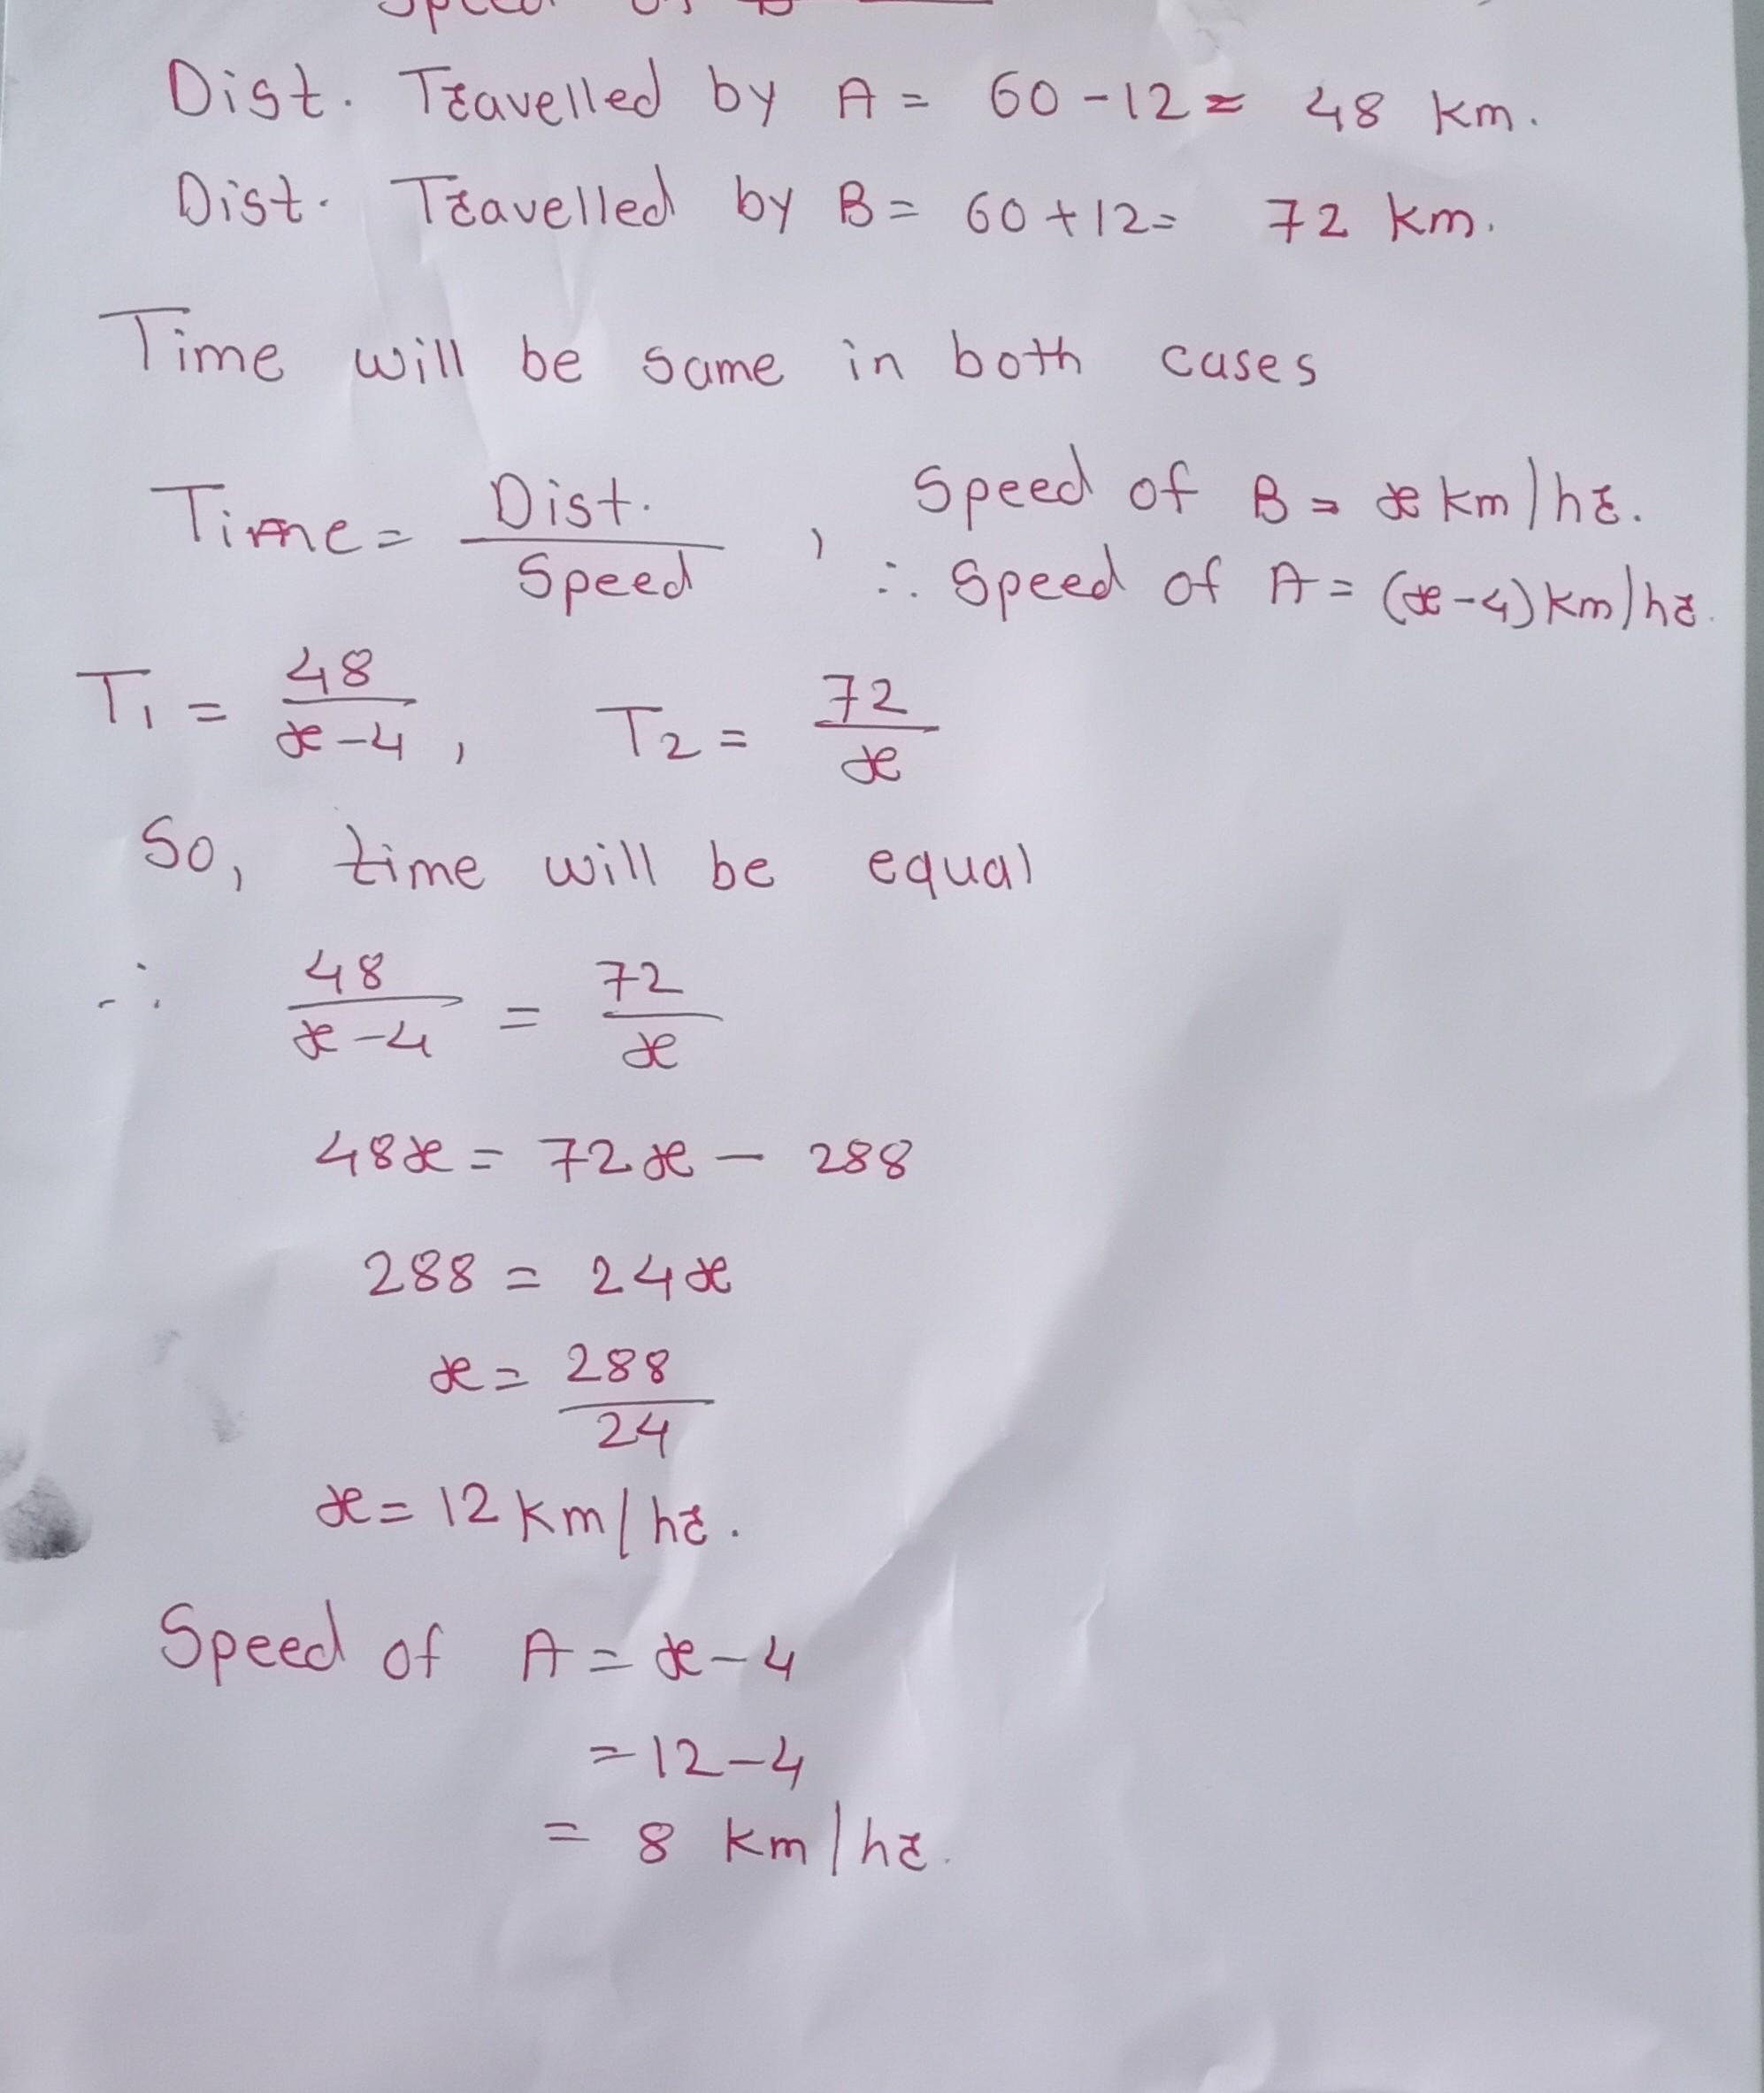 Speed of B
Dist. Travelled by A = 60 - 12 = 48 km.
Dist. Travelled by B = 60 + 12 = 72 km.
Time will be same in both cases
Time = Dist. / Speed , Speed of B = x km/hr.
∴ Speed of A = (x-4) km/hr.
T₁ = 48 / x-4 , T₂ = 72 / x
So, time will be equal
∴ 48 / x-4 = 72 / x
48x = 72x - 288
288 = 24x
x = 288 / 24
x = 12 km/hr.
Speed of A = x-4
= 12-4
= 8 km/hr.